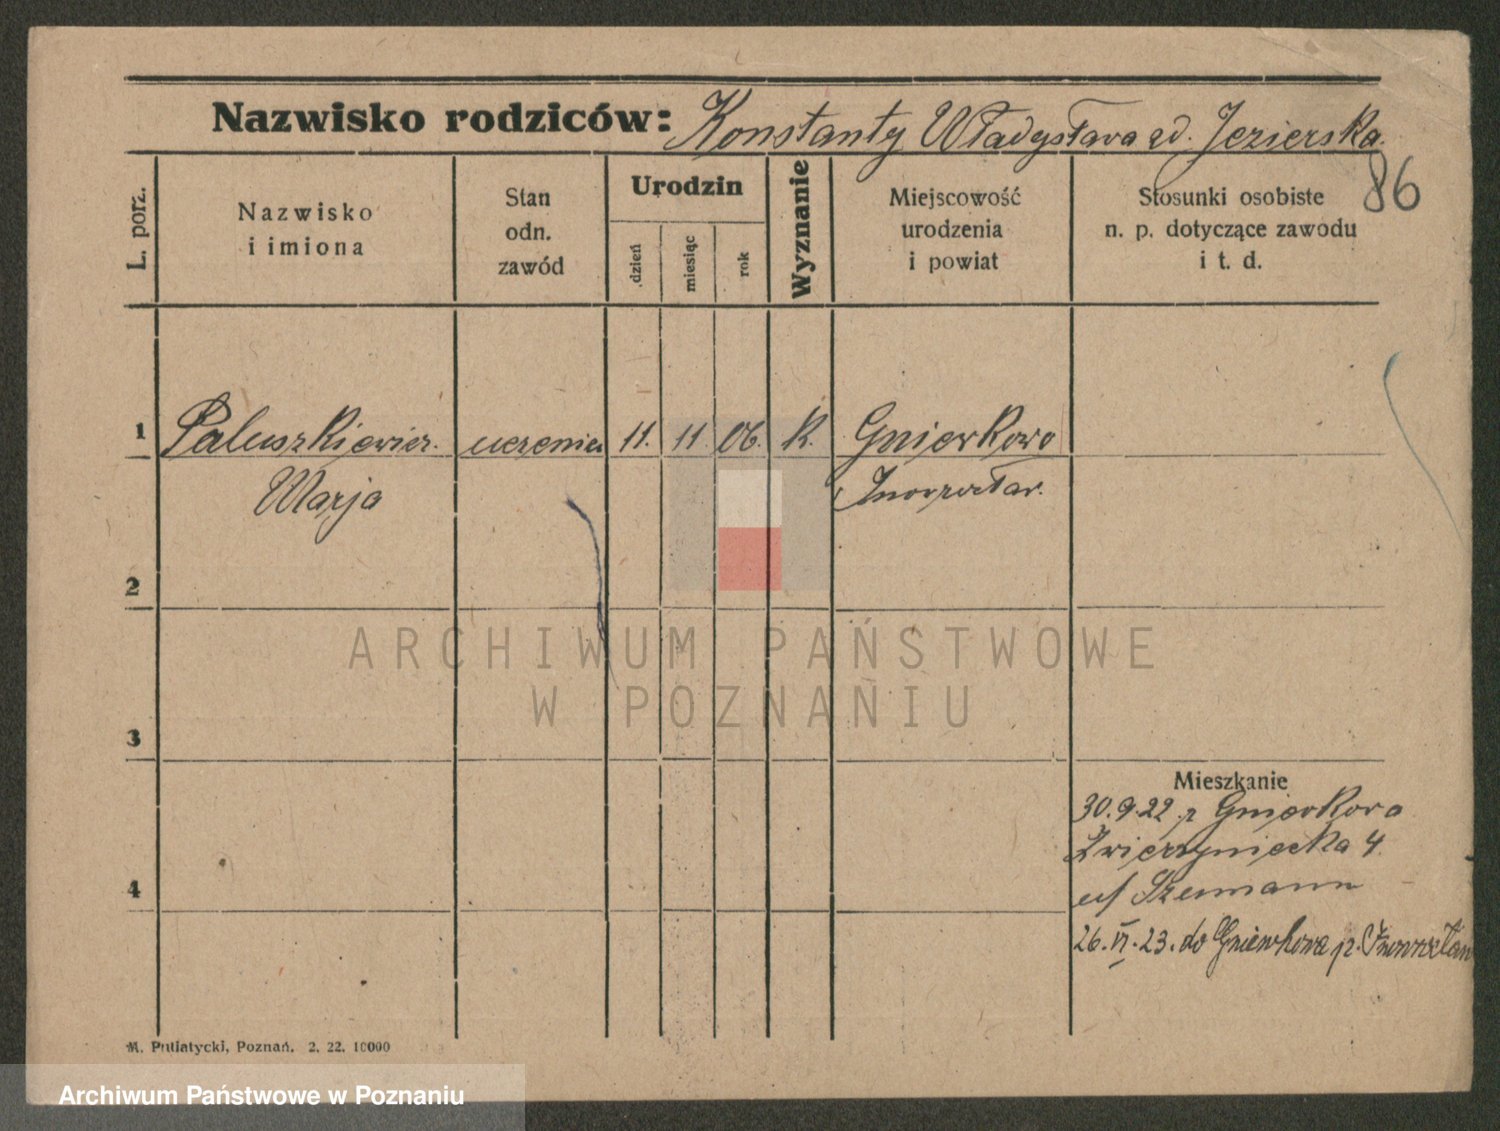 Nazwisko rodziców: Konstanty Władysława żd. Jezierska.
86
L. porz.
Nazwisko
i imiona
Stan
odn.
zawód
Urodzin
dzień
miesiąc
rok
Wyznanie
Miejscowość
urodzenia
i powiat
Stosunki osobiste
n. p. dotyczące zawodu
i t. d.
1 Paluszkiewicz. uczenica 11. 11 06. k. Gniewkowo
Marja Inowrocław.
2
ARCHIWUM PAŃSTWOWE
W POZNANIU
3
Mieszkanie
30.9.22 z Gniewkowa
Zwierzyniecka 4.
u/ Szumann
4
26.VI.23. do Gniewkowa p. Inowrocław
M. Putiatycki, Poznań. 2. 22. 10000
Archiwum Państwowe w Poznaniu